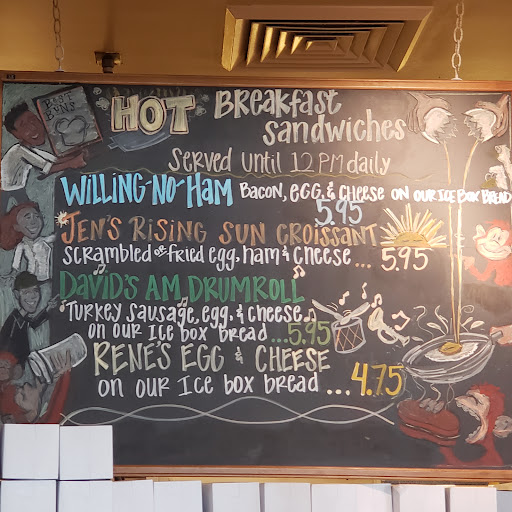 BEST BUNS
HOT Breakfast
Sandwiches
Served until 12 PM daily
WILLING-NO-HAM Bacon, egg, & cheese on our ice box bread
5.95
JEN'S RISING SUN CROISSANT
scrambled or fried egg, ham & cheese ... 5.95
DAVID'S AM DRUMROLL
Turkey sausage, egg, & cheese
on our Ice box bread ... 5.95
RENE'S EGG & CHEESE
on our Ice box bread ... 4.75